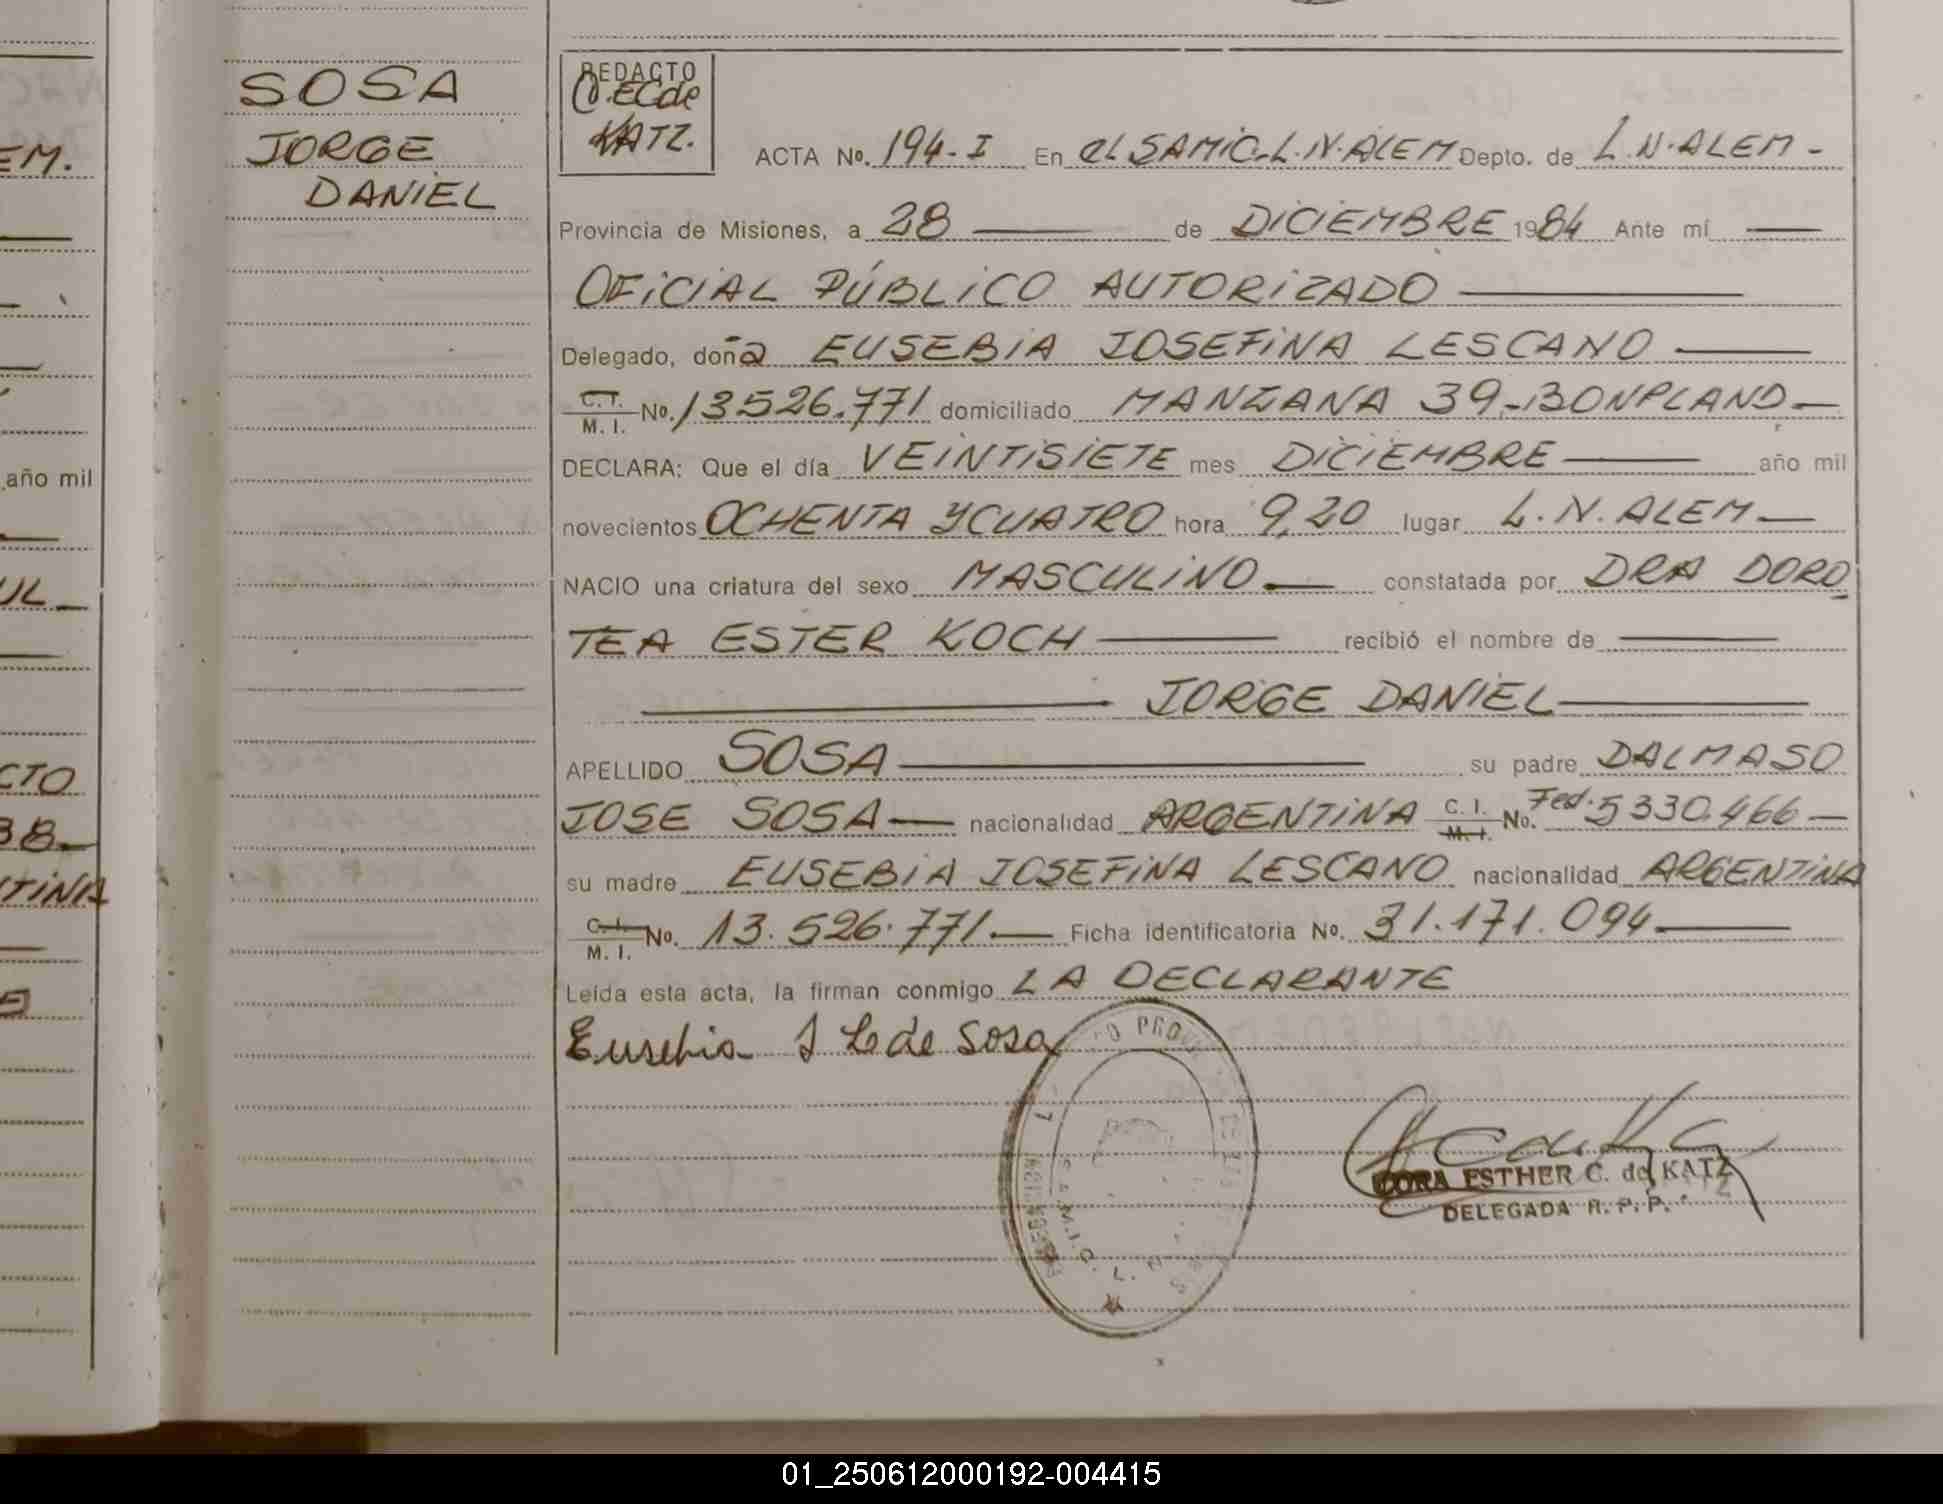 EM.
año mil
UL
CTO
38.
TINA
SOSA
JORGE
DANIEL
REDACTO
C.ECde
KATZ.
ACTA No. 194-I En el SAMIC.L.N.ALEM Depto. de L.N.ALEM-
Provincia de Misiones, a 28 de DICIEMBRE 1984 Ante mí
OFICIAL PÚBLICO AUTORIZADO
Delegado, doña EUSEBIA JOSEFINA LESCANO
C.I. M.I. No. 13526.771 domiciliado MANZANA 39-BONPLAND-
DECLARA: Que el día VEINTISIETE mes DICIEMBRE año mil
novecientos OCHENTA Y CUATRO hora 9,20 lugar L.N. ALEM-
NACIO una criatura del sexo MASCULINO constatada por DRA DORO
TEA ESTER KOCH recibió el nombre de
JORGE DANIEL
APELLIDO SOSA su padre DALMASO
JOSE SOSA nacionalidad ARGENTINA C.I. M.I. No. Fed. 5330.466-
su madre EUSEBIA JOSEFINA LESCANO nacionalidad ARGENTINA
C.I. M.I. No. 13.526.771.- Ficha identificatoria No. 31.171.094
Leída esta acta, la firman conmigo LA DECLARANTE
Eusebia J L de Sosa
CORA ESTHER C. de KATZ
DELEGADA R.P.P.
01_250612000192-004415